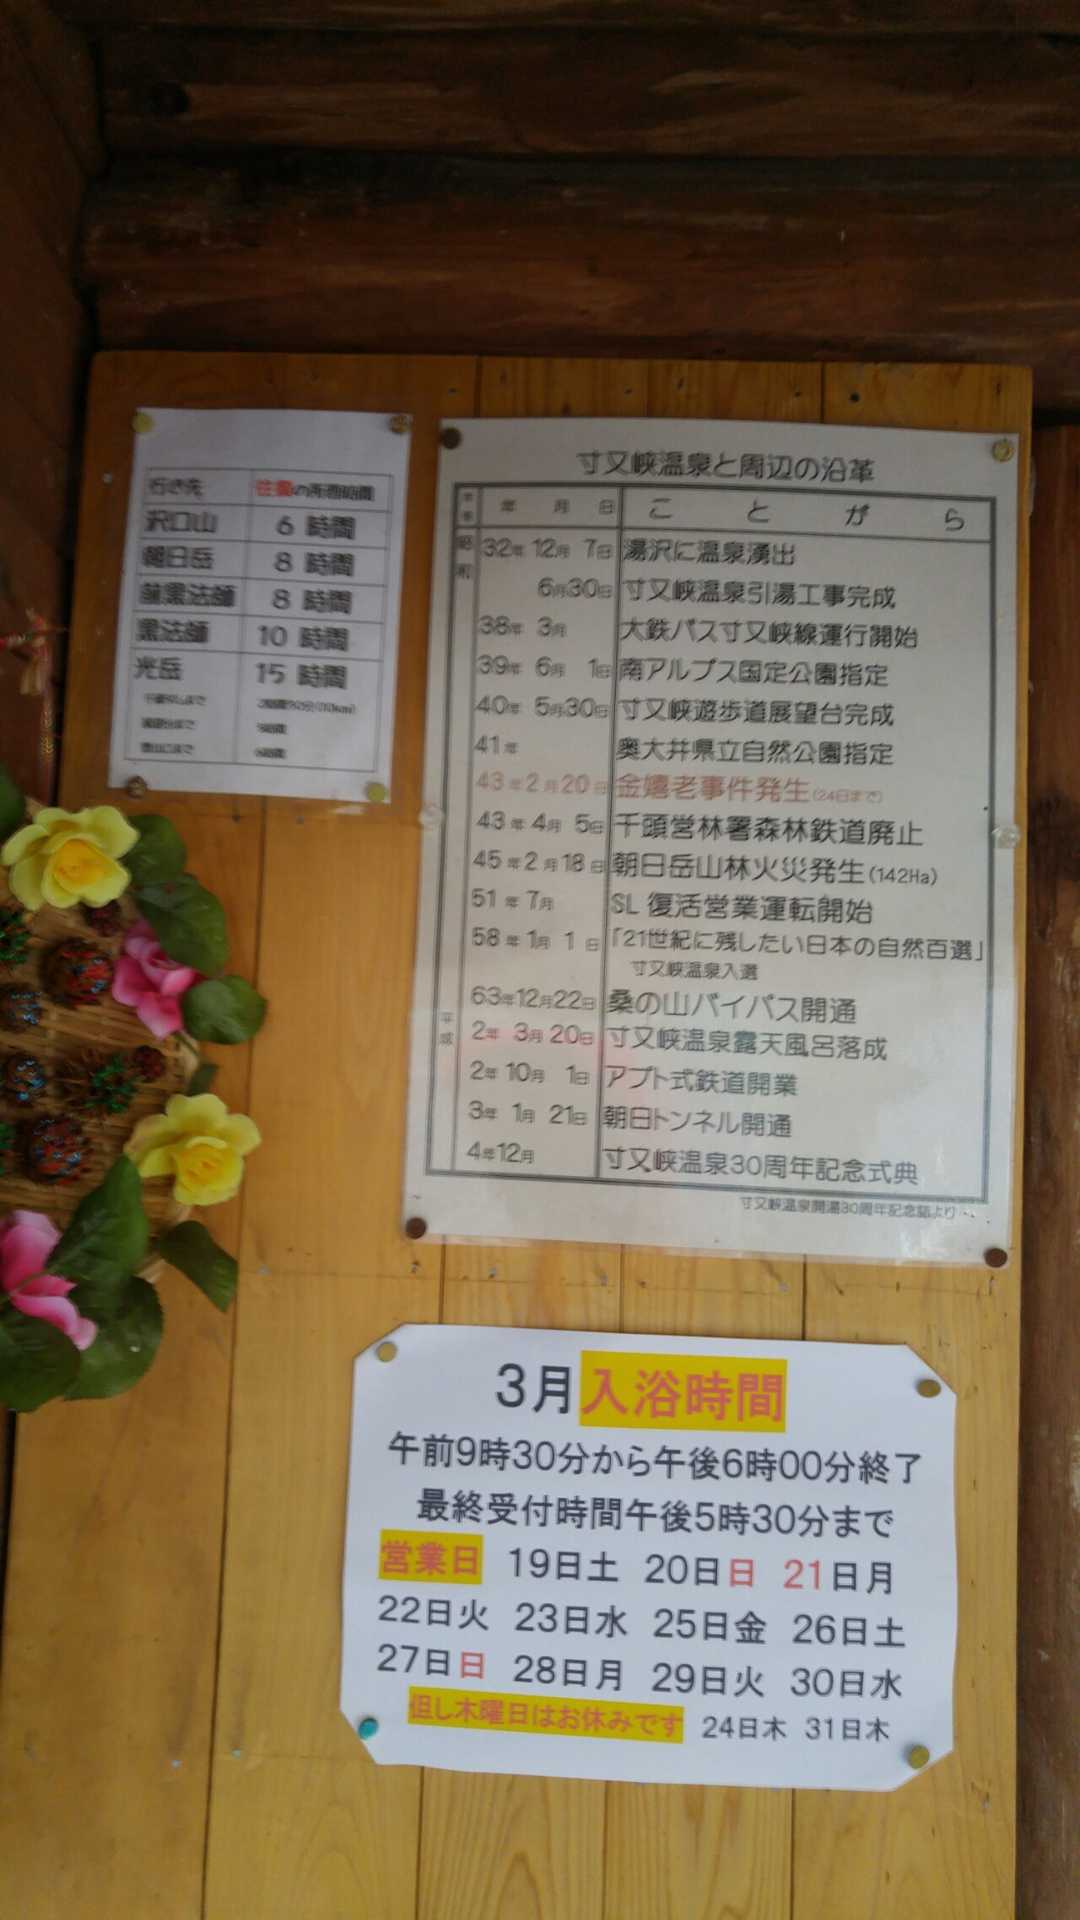 行き先 往復の所要時間
沢口山 6 時間
朝日岳 8 時間
前黒法師 8 時間
黒法師 10 時間
光岳 15 時間
寸又峡温泉と周辺の沿革
年 月 日 ことがら
昭和 32年 12月 7日 湯沢に温泉湧出
6月30日 寸又峡温泉引湯工事完成
38年 3月 大鉄バス寸又峡線運行開始
39年 6月 1日 南アルプス国定公園指定
40年 5月30日 寸又峡遊歩道展望台完成
41年 奥大井県立自然公園指定
43年2月20日 金嬉老事件発生(24日まで)
43年4月 5日 千頭営林署森林鉄道廃止
45年2月18日 朝日岳山林火災発生(142Ha)
51年7月 SL復活営業運転開始
58年1月 1日 「21世紀に残したい日本の自然百選」
寸又峡温泉入選
63年12月22日 桑の山バイパス開通
平成 2年 3月20日 寸又峡温泉露天風呂落成
2年 10月 1日 アプト式鉄道開業
3年 1月 21日 朝日トンネル開通
4年12月 寸又峡温泉30周年記念式典
寸又峡温泉開湯30周年記念誌より
3月入浴時間
午前9時30分から午後6時00分終了
最終受付時間午後5時30分まで
営業日 19日土 20日日 21日月
22日火 23日水 25日金 26日土
27日日 28日月 29日火 30日水
但し木曜日はお休みです 24日木 31日木